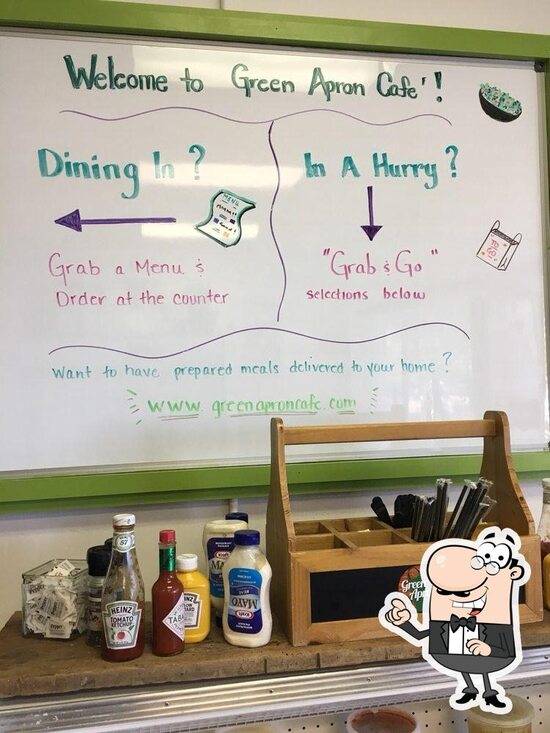 Welcome to Green Apron Cafe'!
Dining In?
MENU
Grab a Menu &
Order at the counter
In A Hurry?
"Grab & Go"
selections below
TO GO
Want to have prepared meals delivered to your home?
www.greenaproncafe.com
57
HEINZ
TOMATO
KETCHUP
TABA
HEINZ
MAYO
Kraft
Green
Apron